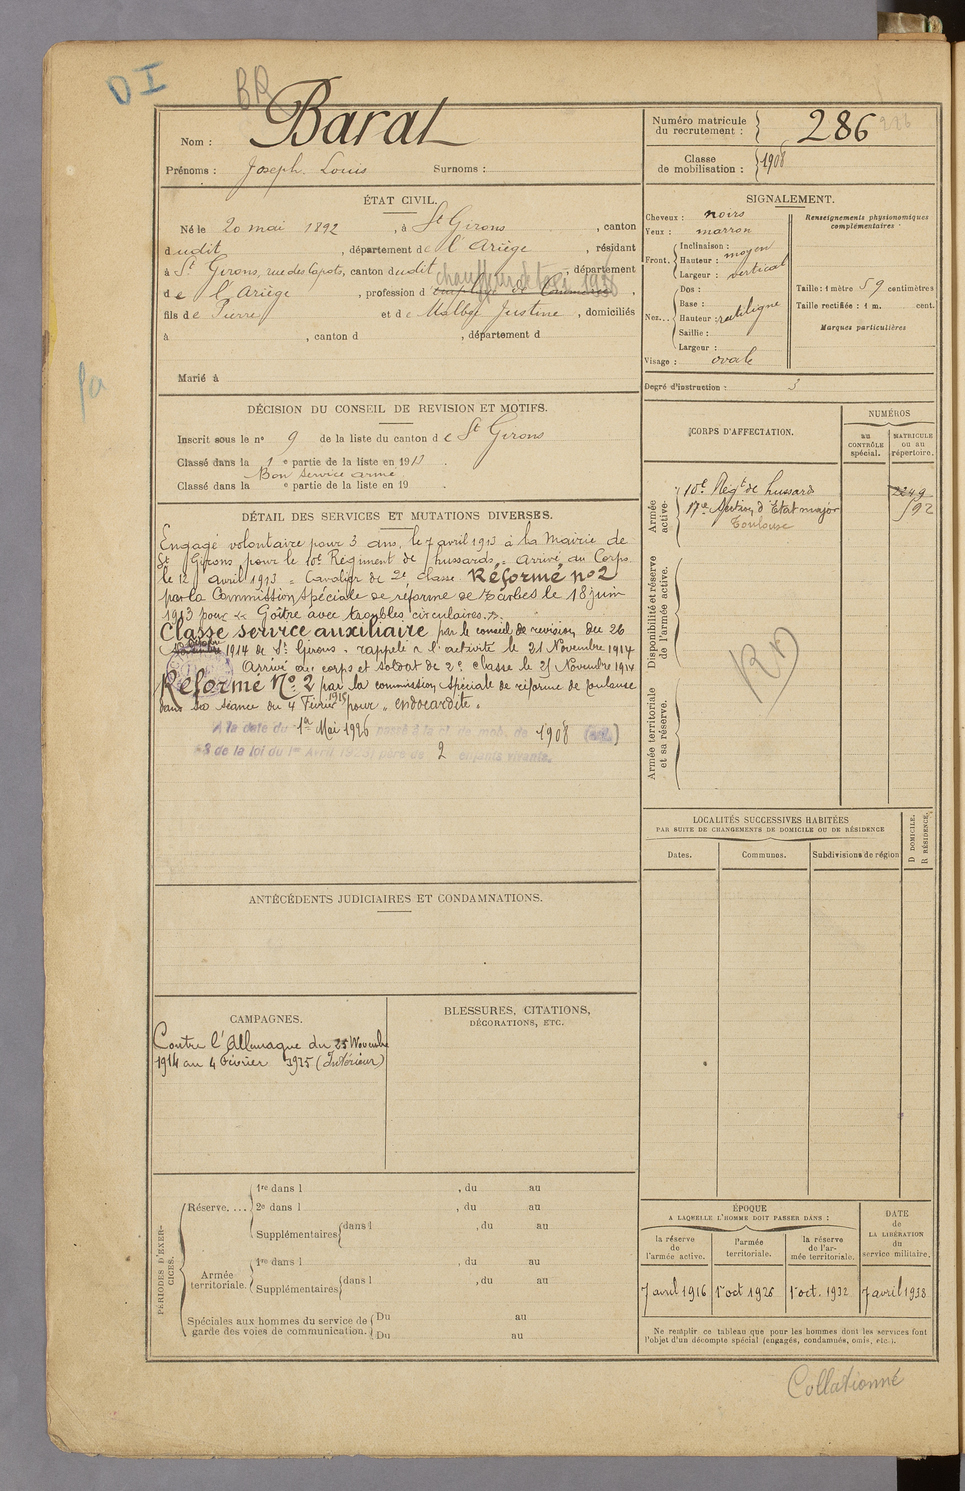 DI
BR
Nom : Barat
Prénoms : Joseph Louis Surnoms :
Numéro matricule du recrutement : 286
Classe de mobilisation : 1908
ÉTAT CIVIL.
Né le 20 mai 1892, à St Girons, canton
dudit, département de l'Ariège, résidant
à St Girons, rue des Capots, canton dudit, département
de l'Ariège, profession d chauffeur de taxi 1936
fils de Pierre et de Malbez Justine, domiciliés
à , canton d , département d
Marié à
SIGNALEMENT.
Cheveux : noirs
Yeux : marron
Front. Inclinaison :
Hauteur : moyen
Largeur : vertical
Nez... Dos :
Base :
Hauteur : rectiligne
Saillie :
Largeur :
Visage : ovale
Renseignements physionomiques complémentaires :
Taille : 1 mètre 59 centimètres
Taille rectifiée : 1 m. cent.
Marques particulières
Degré d'instruction : 3
DÉCISION DU CONSEIL DE REVISION ET MOTIFS.
Inscrit sous le n° 9 de la liste du canton de St Girons
Classé dans la 1e partie de la liste en 1913
Bon service armé
Classé dans la e partie de la liste en 19
DÉTAIL DES SERVICES ET MUTATIONS DIVERSES.
Engagé volontaire pour 3 ans, le 7 avril 1913 à la Mairie de
St Girons pour le 10e Régiment de hussards. Arrivé au Corps
le 12 avril 1913. Cavalier de 2e classe. Réformé n°2
par la Commission spéciale de réforme de Tarbes le 18 juin
1913 pour « Goître avec troubles circulaires. »
Classé service auxiliaire par le conseil de revision du 26
octobre 1914 de St Girons. rappelé à l'activité le 21 Novembre 1914
Arrivé au corps et soldat de 2e classe le 25 Novembre 1914
Réformé No 2 par la commission spéciale de réforme de Toulouse
dans sa séance du 4 Février 1915 pour « endocardite »
A la date du 1er Mai 1926 passé à la cl. de mob. de 1908 (art.)
58 de la loi du 1er Avril 1923) père de 2 enfants vivants.
CORPS D'AFFECTATION.
NUMÉROS
au CONTRÔLE spécial.
MATRICULE ou au répertoire.
Armée active.
10e Régt de hussards 2249
17e Section d'Etat major 592
Toulouse
Disponibilité et réserve de l'armée active.
Armée territoriale et sa réserve.
LOCALITÉS SUCCESSIVES HABITÉES
PAR SUITE DE CHANGEMENTS DE DOMICILE OU DE RÉSIDENCE
Dates. Communes. Subdivisions de région
D DOMICILE. R RÉSIDENCE.
ANTÉCÉDENTS JUDICIAIRES ET CONDAMNATIONS.
CAMPAGNES.
Contre l'Allemagne du 25 Novembre
1914 au 4 Février 1915 (Intérieur)
BLESSURES, CITATIONS,
DÉCORATIONS, ETC.
PÉRIODES D'EXERCICES.
Réserve.... 1re dans l , du au
2e dans l , du au
Supplémentaires dans l , du au
Armée territoriale. 1re dans l , du au
Supplémentaires dans l , du au
Spéciales aux hommes du service de garde des voies de communication. Du au
Du au
ÉPOQUE
A LAQUELLE L'HOMME DOIT PASSER DANS :
la réserve de l'armée active.
l'armée territoriale.
la réserve de l'armée territoriale.
DATE de LA LIBÉRATION du service militaire.
7 avril 1916 1er oct 1926 1er oct. 1932 7 avril 1938
Ne remplir ce tableau que pour les hommes dont les services font
l'objet d'un décompte spécial (engagés, condamnés, omis, etc.).
Collationné